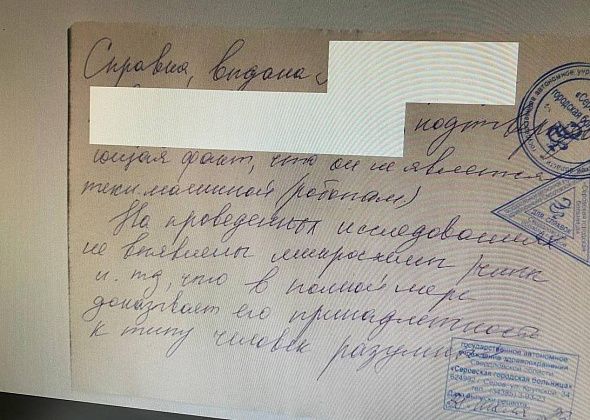 Справка, выдана
подтвер
ющая факт, что он не является
техн.машиной (роботам)
На проведенных исследованиях
не выявлены микросхемы, чипы
и.тд, что в полной мере
доказывает его принадлежность
к типу человек разумный
«Серовская
городская больница»
государственное автономное
учреждение здравоохранения
Свердловской области
«Серовская городская больница»
624992 г. Серов, ул. Крупской, 34
тел.